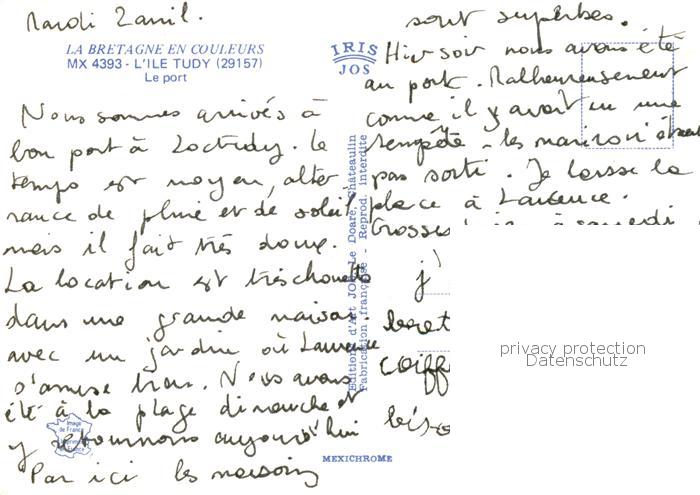 Mardi 2 avril.
LA BRETAGNE EN COULEURS
MX 4393 - L'ILE TUDY (29157)
Le port
Nous sommes arrivés à
bon port à Loctudy. Le
temps est moyen, alter
nance de pluie et de soleil
mais il fait très doux.
La location est très chouette
dans une grande maison.
avec un jardin où Laurence
s'amuse bien. Nous avons
été à la plage dimanche et
y retournons aujourd'hui
Par ici les maisons
Image de France
IRIS
JOS
Editions d'Art JOS Le Doaré, Châteaulin
Fabrication française - Reprod. interdite
MEXICHROME
sont superbes.
Hier soir nous avons été
au port. Malheureusement
comme il y avait eu une
tempête, les marins n'étaient
pas sorti. Je laisse la
place à Laurence.
à samedi
j'
coiff
privacy protection
Datenschutz